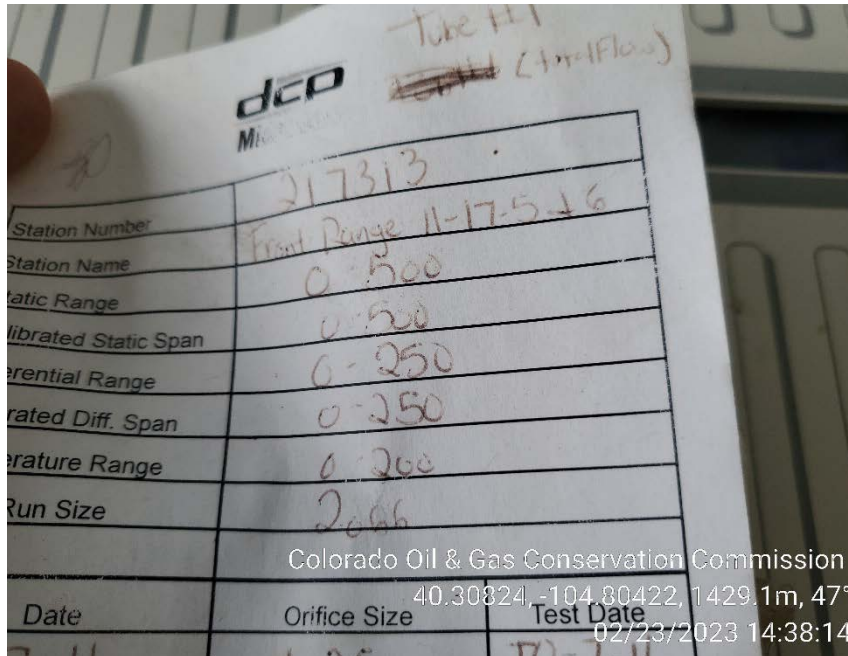 Tube #1
(totalFlow)
dcp
Station Number 217313
Station Name Front Range 11-17-5 + 6
tatic Range 0-500
librated Static Span 0-500
erential Range 0-250
rated Diff. Span 0-250
erature Range 0-200
Run Size 2.066
Colorado Oil & Gas Conservation Commission
40.30824, -104.80422, 1429.1m, 47°
Date Orifice Size Test Date
02/23/2023 14:38:14